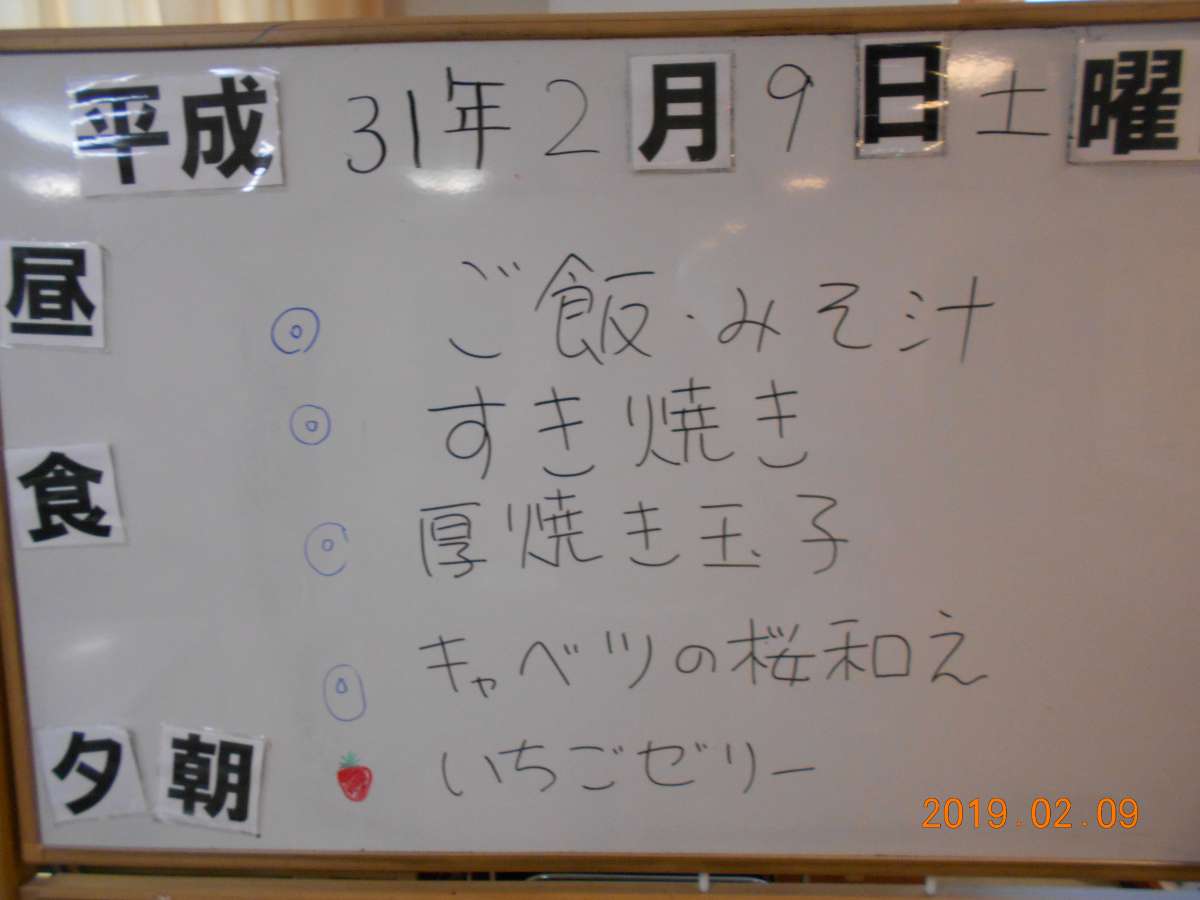 平成31年2月9日土曜
昼食
ご飯・みそ汁
すき焼き
厚焼き玉子
キャベツの桜和え
いちごゼリー
夕朝
2019.02.09